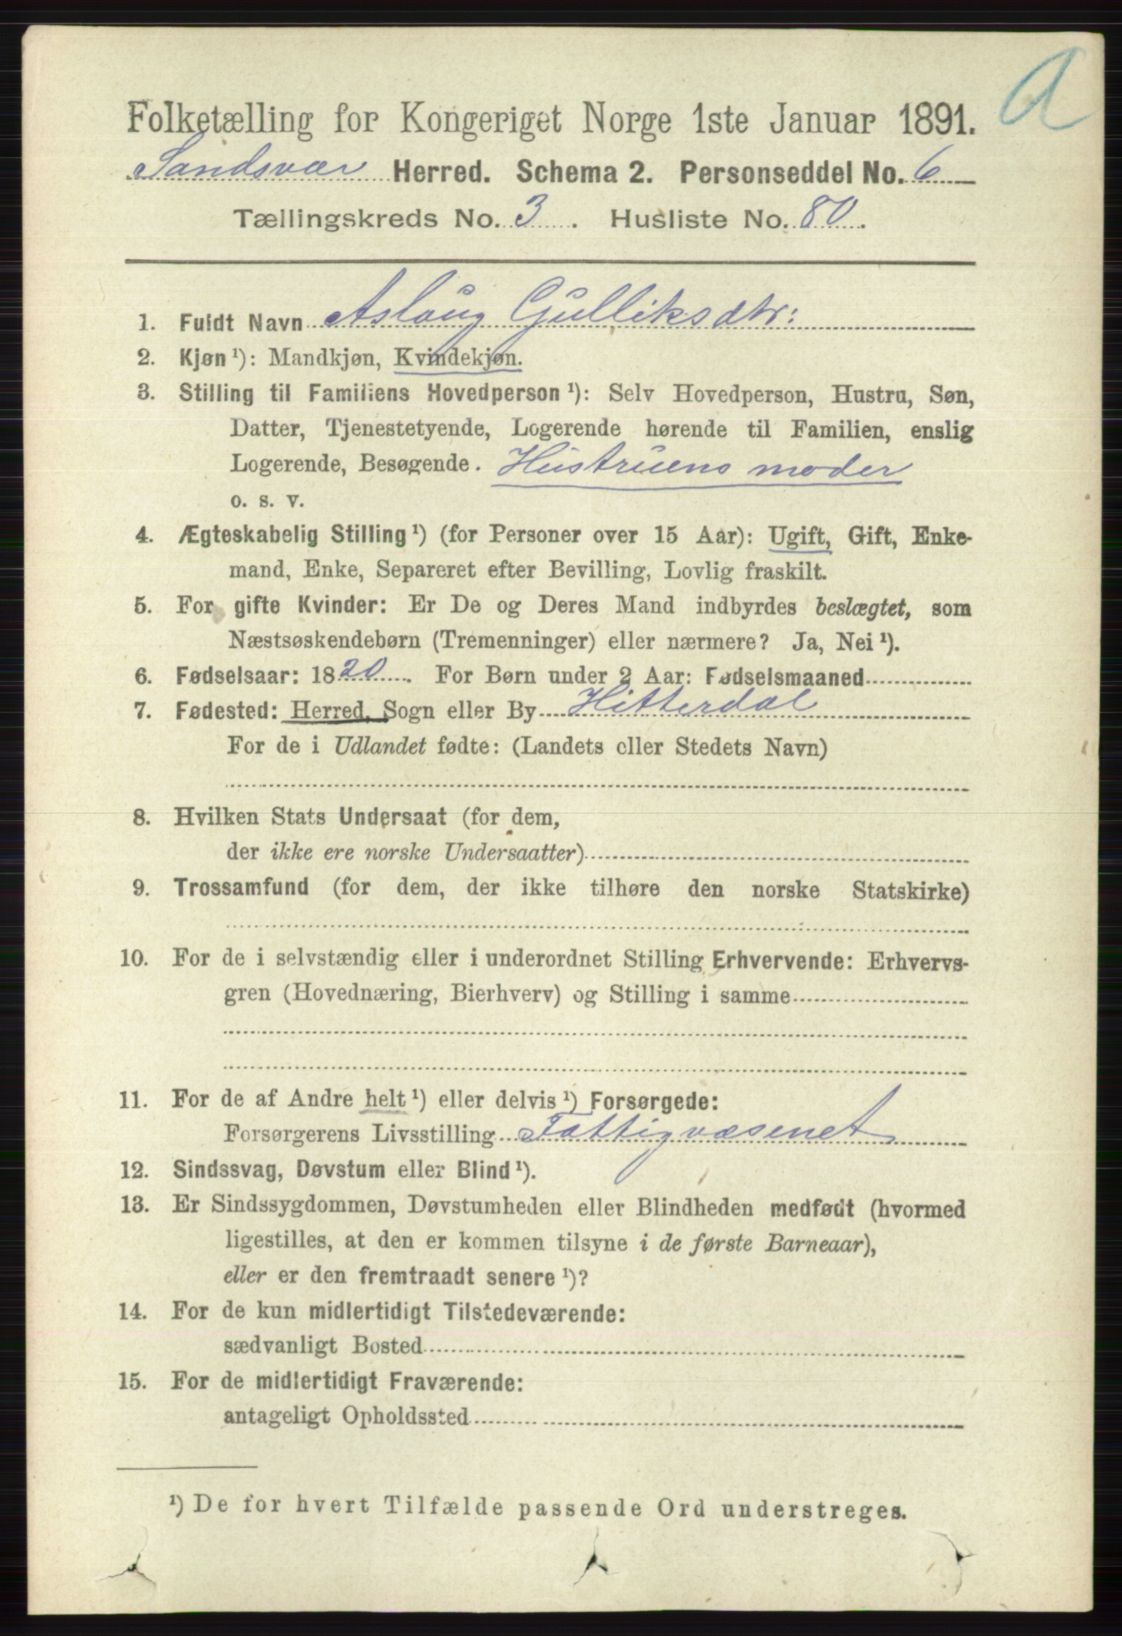 A
Folketælling for Kongeriget Norge 1ste Januar 1891.
Sandsvær Herred. Schema 2. Personseddel No. 6
Tællingskreds No. 3. Husliste No. 80.
1. Fuldt Navn Aslaug Gulliksdtr:
2. Kjøn ¹): Mandkjøn, Kvindekjøn.
3. Stilling til Familiens Hovedperson ¹): Selv Hovedperson, Hustru, Søn,
Datter, Tjenestetyende, Logerende hørende til Familien, enslig
Logerende, Besøgende. Hustruens moder
o. s. v.
4. Ægteskabelig Stilling ¹) (for Personer over 15 Aar): Ugift, Gift, Enke-
mand, Enke, Separeret efter Bevilling, Lovlig fraskilt.
5. For gifte Kvinder: Er De og Deres Mand indbyrdes beslægtet, som
Næstsøskendebørn (Tremenninger) eller nærmere? Ja, Nei ¹).
6. Fødselsaar: 1820. For Børn under 2 Aar: Fødselsmaaned
7. Fødested: Herred, Sogn eller By Hitterdal
For de i Udlandet fødte: (Landets eller Stedets Navn)
8. Hvilken Stats Undersaat (for dem,
der ikke ere norske Undersaatter)
9. Trossamfund (for dem, der ikke tilhøre den norske Statskirke)
10. For de i selvstændig eller i underordnet Stilling Erhvervende: Erhvervs-
gren (Hovednæring, Bierhverv) og Stilling i samme
11. For de af Andre helt ¹) eller delvis ¹) Forsørgede:
Forsørgerens Livsstilling Fattigvæsenet
12. Sindssvag, Døvstum eller Blind ¹).
13. Er Sindssygdommen, Døvstumheden eller Blindheden medfødt (hvormed
ligestilles, at den er kommen tilsyne i de første Barneaar),
eller er den fremtraadt senere ¹)?
14. For de kun midlertidigt Tilstedeværende:
sædvanligt Bosted
15. For de midlertidigt Fraværende:
antageligt Opholdssted
¹) De for hvert Tilfælde passende Ord understreges.